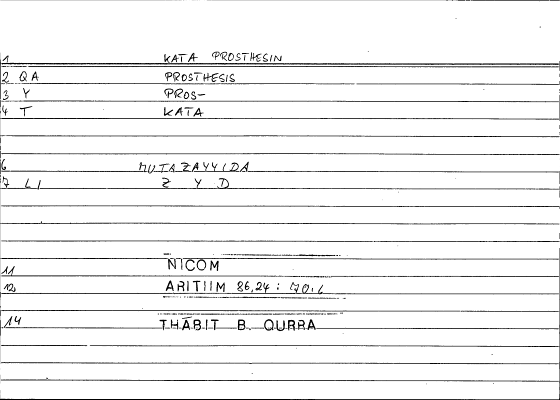 1 KATA PROSTHESIN
2 QA PROSTHESIS
3 Y PROS-
4 T KATA
6 MUTAZAYYIDA
7 LI Z Y D
11 NICOM
12 ARITIIM 86,24 : 70.6
14 THĀBIT B. QURRA